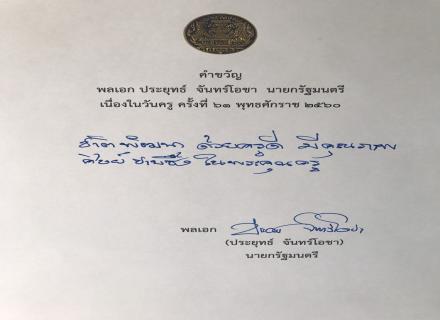 คำขวัญ
พลเอก ประยุทธ์ จันทร์โอชา นายกรัฐมนตรี
เนื่องในวันครู ครั้งที่ ๖๑ พุทธศักราช ๒๕๖๐
ชาติพัฒนา ด้วยครูดี มีคุณภาพ
ศิษย์ ซาบซึ้ง ในพระคุณครู
พลเอก
(ประยุทธ์ จันทร์โอชา)
นายกรัฐมนตรี